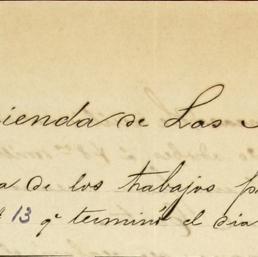 ienda de Las
a de los trabajos p
13 qe terminó el dia